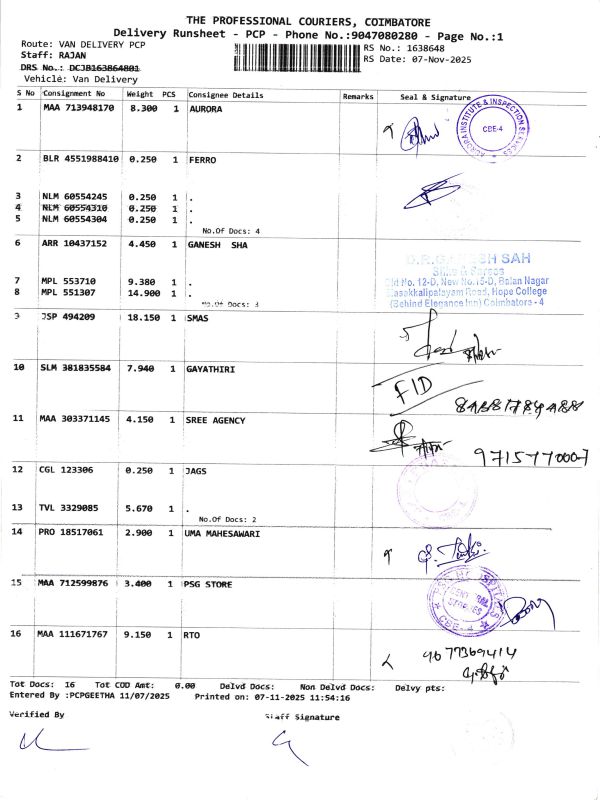 THE PROFESSIONAL COURIERS, COIMBATORE
Delivery Runsheet - PCP - Phone No.:9047080280 - Page No.:1
Route: VAN DELIVERY PCP
RS No.: 1638648
Staff: RAJAN
RS Date: 07-Nov-2025
DRS No.: DCJB163864801
Vehicle: Van Delivery
S No Consignment No Weight PCS Consignee Details Remarks Seal & Signature
1 MAA 713948170 8.300 1 AURORA
AURORA INSTITUTE & INSPECTION SERVICES
CBE-4
2 BLR 4551988410 0.250 1 FERRO
3 NLM 60554245 0.250 1 .
4 NLM 60554310 0.250 1 .
5 NLM 60554304 0.250 1 .
No.Of Docs: 4
6 ARR 10437152 4.450 1 GANESH SHA
D.R.GANESH SAH
Old No. 12-D, New No.15-D, Balan Nagar
7 MPL 553710 9.380 1 .
Masakkalipalayam Road, Hope College
8 MPL 551307 14.900 1 .
(Behind Elegance Inn) Coimbatore - 4
No.Of Docs: 3
9 JSP 494209 18.150 1 SMAS
10 SLM 381835584 7.940 1 GAYATHIRI
FID
11 MAA 303371145 4.150 1 SREE AGENCY
9715770007
12 CGL 123306 0.250 1 JAGS
13 TVL 3329085 5.670 1 .
No.Of Docs: 2
14 PRO 18517061 2.900 1 UMA MAHESAWARI
15 MAA 712599876 3.400 1 PSG STORE
CENTRAL
STORES
CBE-4
16 MAA 111671767 9.150 1 RTO
9677369414
Tot Docs: 16 Tot COD Amt: 0.00 Delvd Docs: Non Delvd Docs: Delvy pts:
Entered By :PCPGEETHA 11/07/2025 Printed on: 07-11-2025 11:54:16
Verified By
Staff Signature